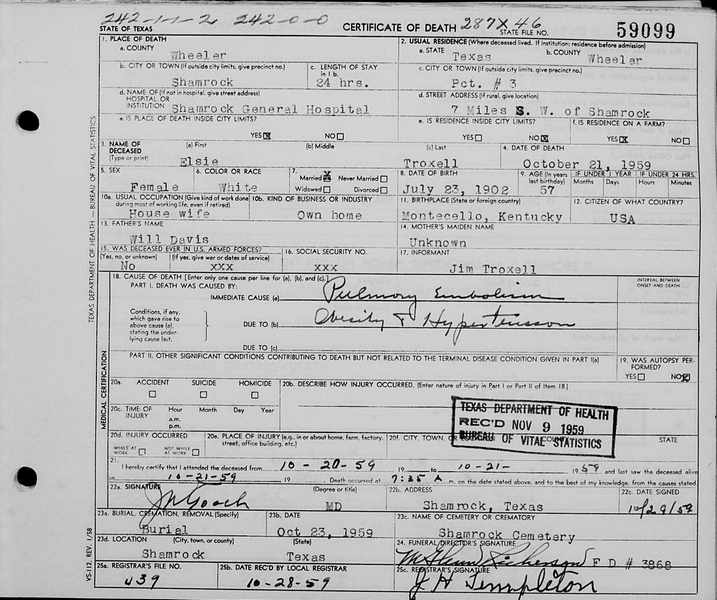 242-1-1-2 242-0-0 CERTIFICATE OF DEATH 287X46 59099
STATE OF TEXAS STATE FILE NO.
1. PLACE OF DEATH 2. USUAL RESIDENCE (Where deceased lived. If institution: residence before admission)
a. COUNTY a. STATE b. COUNTY
Wheeler Texas Wheeler
b. CITY OR TOWN (If outside city limits, give precinct no.) c. LENGTH OF STAY in 1 b. c. CITY OR TOWN (If outside city limits, give precinct no.)
Shamrock 24 hrs. Pct. # 3
d. NAME OF (If not in hospital, give street address) HOSPITAL OR INSTITUTION d. STREET ADDRESS (If rural, give location)
Shamrock General Hospital 7 Miles S. W. of Shamrock
e. IS PLACE OF DEATH INSIDE CITY LIMITS? e. IS RESIDENCE INSIDE CITY LIMITS? f. IS RESIDENCE ON A FARM?
YES NO YES NO YES NO
3. NAME OF DECEASED (Type or print) (a) First (b) Middle (c) Last 4. DATE OF DEATH
Elsie Troxell October 21, 1959
5. SEX 6. COLOR OR RACE 7. Married Never Married Widowed Divorced 8. DATE OF BIRTH 9. AGE (In years last birthday) IF UNDER 1 YEAR Months Days IF UNDER 24 HRS. Hours Min.
Female White July 23, 1902 57
10a. USUAL OCCUPATION (Give kind of work done during most of working life, even if retired) 10b. KIND OF BUSINESS OR INDUSTRY 11. BIRTHPLACE (State or foreign country) 12. CITIZEN OF WHAT COUNTRY?
House wife Own home Montecello, Kentucky USA
13. FATHER'S NAME 14. MOTHER'S MAIDEN NAME
Will Davis Unknown
15. WAS DECEASED EVER IN U.S. ARMED FORCES? 16. SOCIAL SECURITY NO. 17. INFORMANT
(Yes, no, or unknown) (If yes, give war or dates of service)
No xxx xxx Jim Troxell
18. CAUSE OF DEATH [Enter only one cause per line for (a), (b), and (c).] INTERVAL BETWEEN ONSET AND DEATH
PART I. DEATH WAS CAUSED BY:
IMMEDIATE CAUSE (a) Pulmory Embolism
Conditions, if any, which gave rise to above cause (a), stating the underlying cause last.
DUE TO (b) Obesity & Hypertensson
DUE TO (c)
PART II. OTHER SIGNIFICANT CONDITIONS CONTRIBUTING TO DEATH BUT NOT RELATED TO THE TERMINAL DISEASE CONDITION GIVEN IN PART I(a) 19. WAS AUTOPSY PERFORMED?
YES NO
20a. ACCIDENT SUICIDE HOMICIDE 20b. DESCRIBE HOW INJURY OCCURRED. (Enter nature of injury in Part I or Part II of Item 18)
20c. TIME OF INJURY Hour Month Day Year
a.m.
p.m.
TEXAS DEPARTMENT OF HEALTH
REC'D NOV 9 1959
BUREAU OF VITAL STATISTICS
20d. INJURY OCCURRED 20e. PLACE OF INJURY (e.g., in or about home, farm, factory, street, office building, etc.) 20f. CITY, TOWN, OR STATE
WHILE AT WORK NOT WHILE AT WORK
21. I hereby certify that I attended the deceased from 10-20-59 19 to 10-21- 1959 and last saw the deceased alive
on 10-21-59 19 Death occurred at 7:25 A m. on the date stated above, and to the best of my knowledge, from the causes stated
22a. SIGNATURE (Degree or title) 22b. ADDRESS 22c. DATE SIGNED
Gooch MD Shamrock, Texas 10/29/59
23a. BURIAL, CREMATION, REMOVAL (Specify) 23b. DATE 23c. NAME OF CEMETERY OR CREMATORY
Burial Oct 23, 1959 Shamrock Cemetery
23d. LOCATION (City, town, or county) (State) 24. FUNERAL DIRECTOR'S SIGNATURE
Shamrock Texas Richerson F D # 3868
25a. REGISTRAR'S FILE NO. 25b. DATE REC'D BY LOCAL REGISTRAR 25c. REGISTRAR'S SIGNATURE
439 10-28-59 J H Templeton
TEXAS DEPARTMENT OF HEALTH — BUREAU OF VITAL STATISTICS
MEDICAL CERTIFICATION
VS-112, REV. 1/58